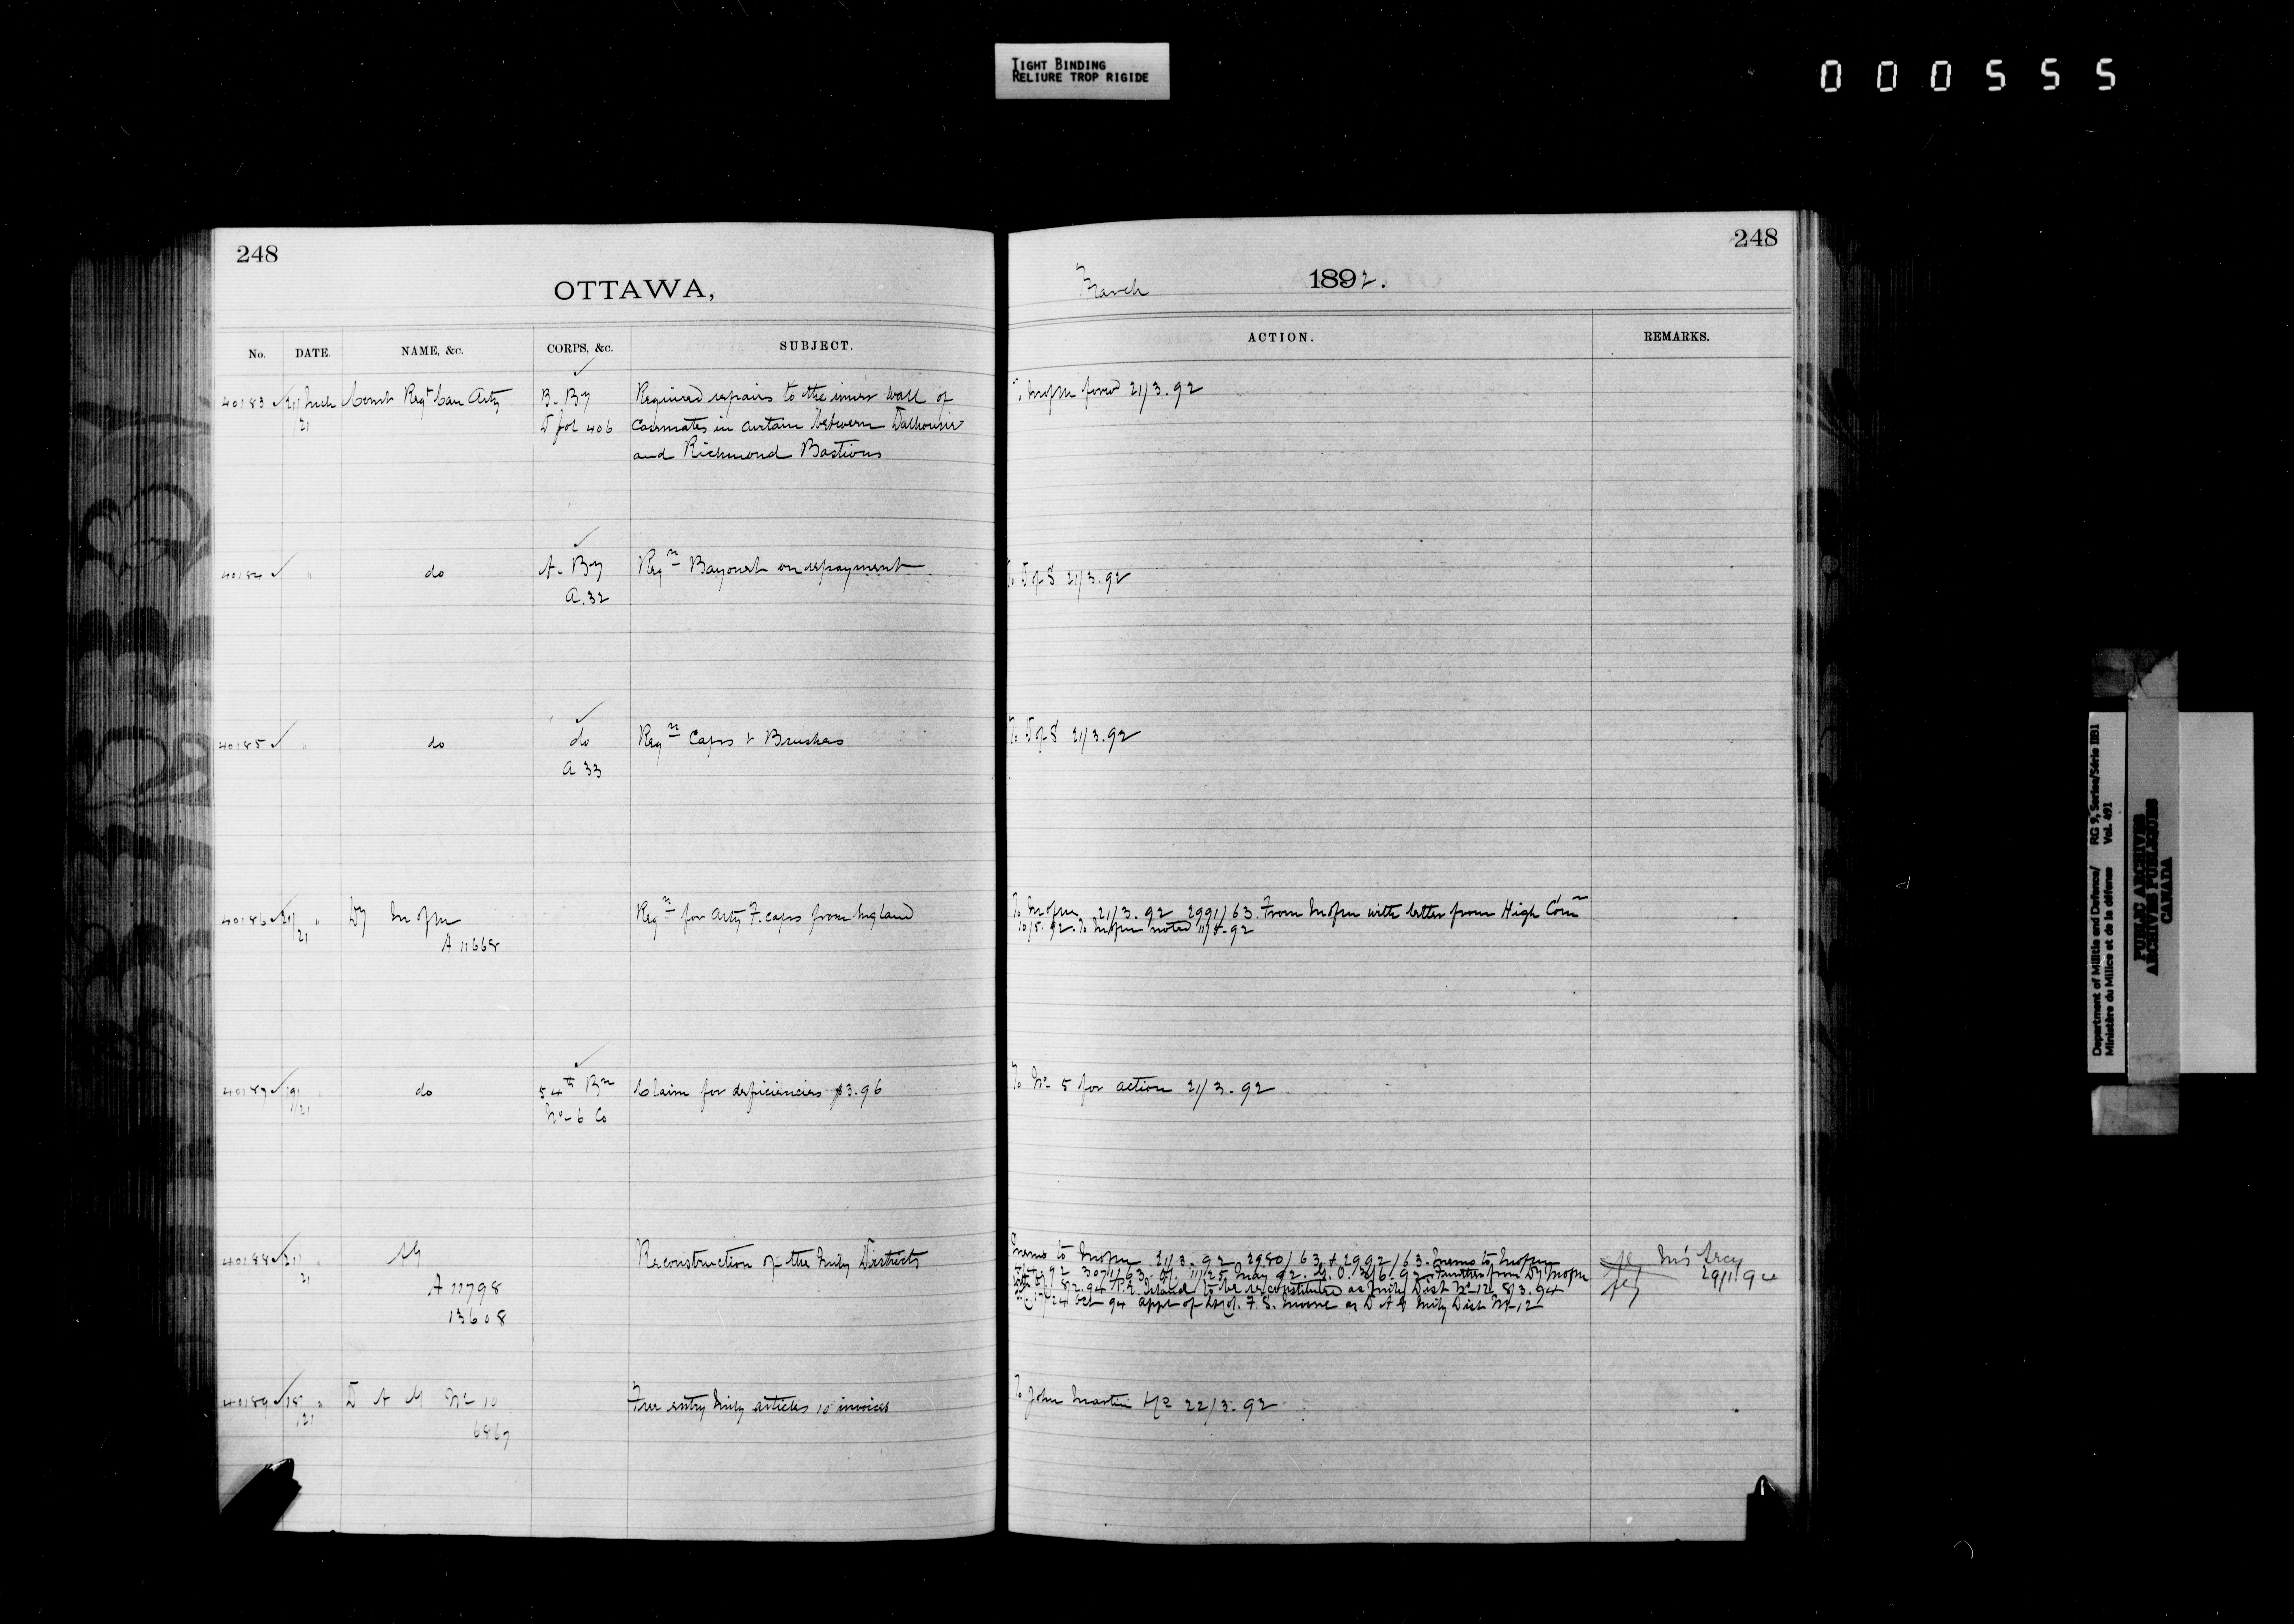 TIGHT BINDING
RELIURE TROP RIGIDE
000555
248
OTTAWA,
No. DATE. NAME, &c. CORPS, &c. SUBJECT.
40183 21 Mch Comt Regt Can Arty B. By Required repairs to the inner wall of
21 D fol 406 Casemates in curtain between Dalhousie
and Richmond Bastions
40184 " do A. By Reqn Bayonet on repayment
A. 32
40185 " do do Reqn Caps & Brushes
A 33
40186 21 " Dy M of M Reqn for Arty F. caps from England
21 A 11668
40187 19 " do 54th Bn Claim for deficiencies $3.96
21 No 6 Co
40188 21 " AG Reconstruction of the Mily Districts
21 A 11798
13608
40189 18 " D A G No 10 Free entry Mily articles 10 invoices
21 6867
248
March 1892.
ACTION. REMARKS.
forwd 21/3.92
To D of S 21/3.92
To D of S 21/3.92
To 21/3.92 2991/63. From with letter from High Comn
10/5.92. To noted 11/5.92
To No 5 for action 21/3.92
Memo to 21/3.92 2980/63 & 2992/63. Memo to
92 3071/63. May 92. G.O. 3/6.92. Further from Dy
8/2.94 P.E. Island to be reconstituted as Mily Dist No 12 8/3.94
24 Oct 94 appt of F. S. Moore as D A G Mily Dist No 12
29/1.94
To John Martin 22/3.92
Department of Militia and Defence/ RG 9, Series/Série IIB1
Ministère du Milice et de la défense Vol. 491
PUBLIC ARCHIVES
ARCHIVES PUBLIQUES
CANADA